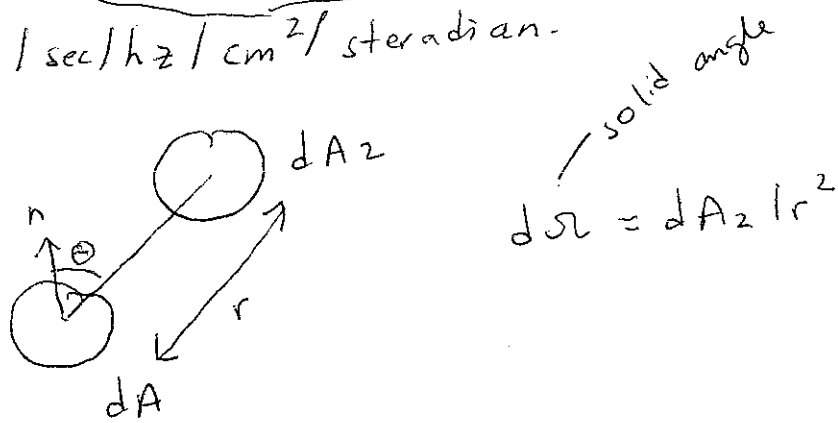 / sec / hz / cm²/ steradian.
solid angle
dA2
n
θ
dΩ = dA2 / r²
r
dA